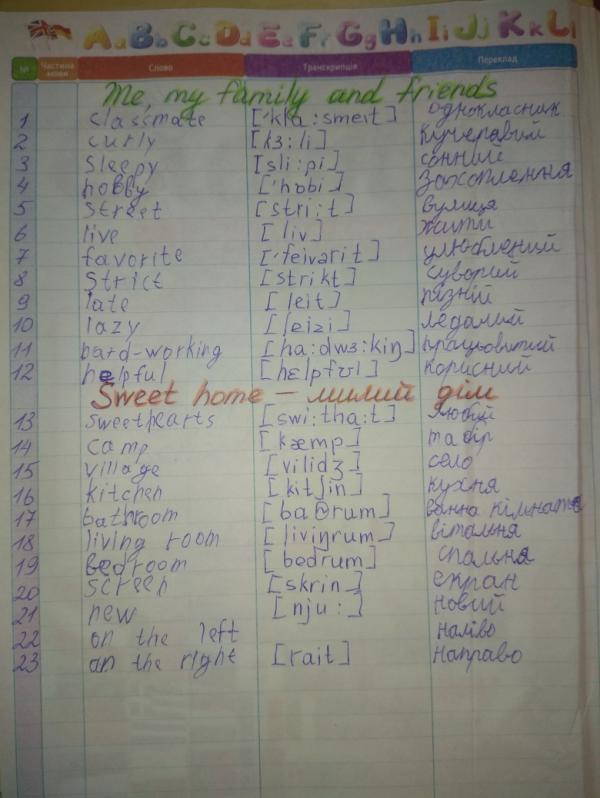 Aa Bb Cc Dd Ee Ff Gg Hh Ii Jj Kk Ll
№ Частина мови Слово Транскрипція Переклад
Me, my family and friends
1 classmate ['kla:smeit] однокласник
2 curly [kз:li] кучеравий
3 sleepy [sli:pi] сонний
4 hobby ['hobi] захоплення
5 street [stri:t] вулиця
6 live [liv] жити
7 favorite ['feivarit] улюблений
8 strict [strikt] суворий
9 late [leit] пізній
10 lazy [leizi] ледачий
11 hard-working [ha:dwз:kiŋ] працьовитий
12 helpful [hεlpfʊl] корисний
Sweet home – милий дім
13 sweethearts [swi:tha:t] любій
14 camp [kæmp] табір
15 village [vilidʒ] село
16 kitchen [kitʃin] кухня
17 bathroom [baθrum] ванна кімната
18 living room [liviŋrum] вітальня
19 bedroom [bedrum] спальня
20 screen [skrin] екран
21 new [nju:] новий
22 on the left наліво
23 on the right [rait] направо